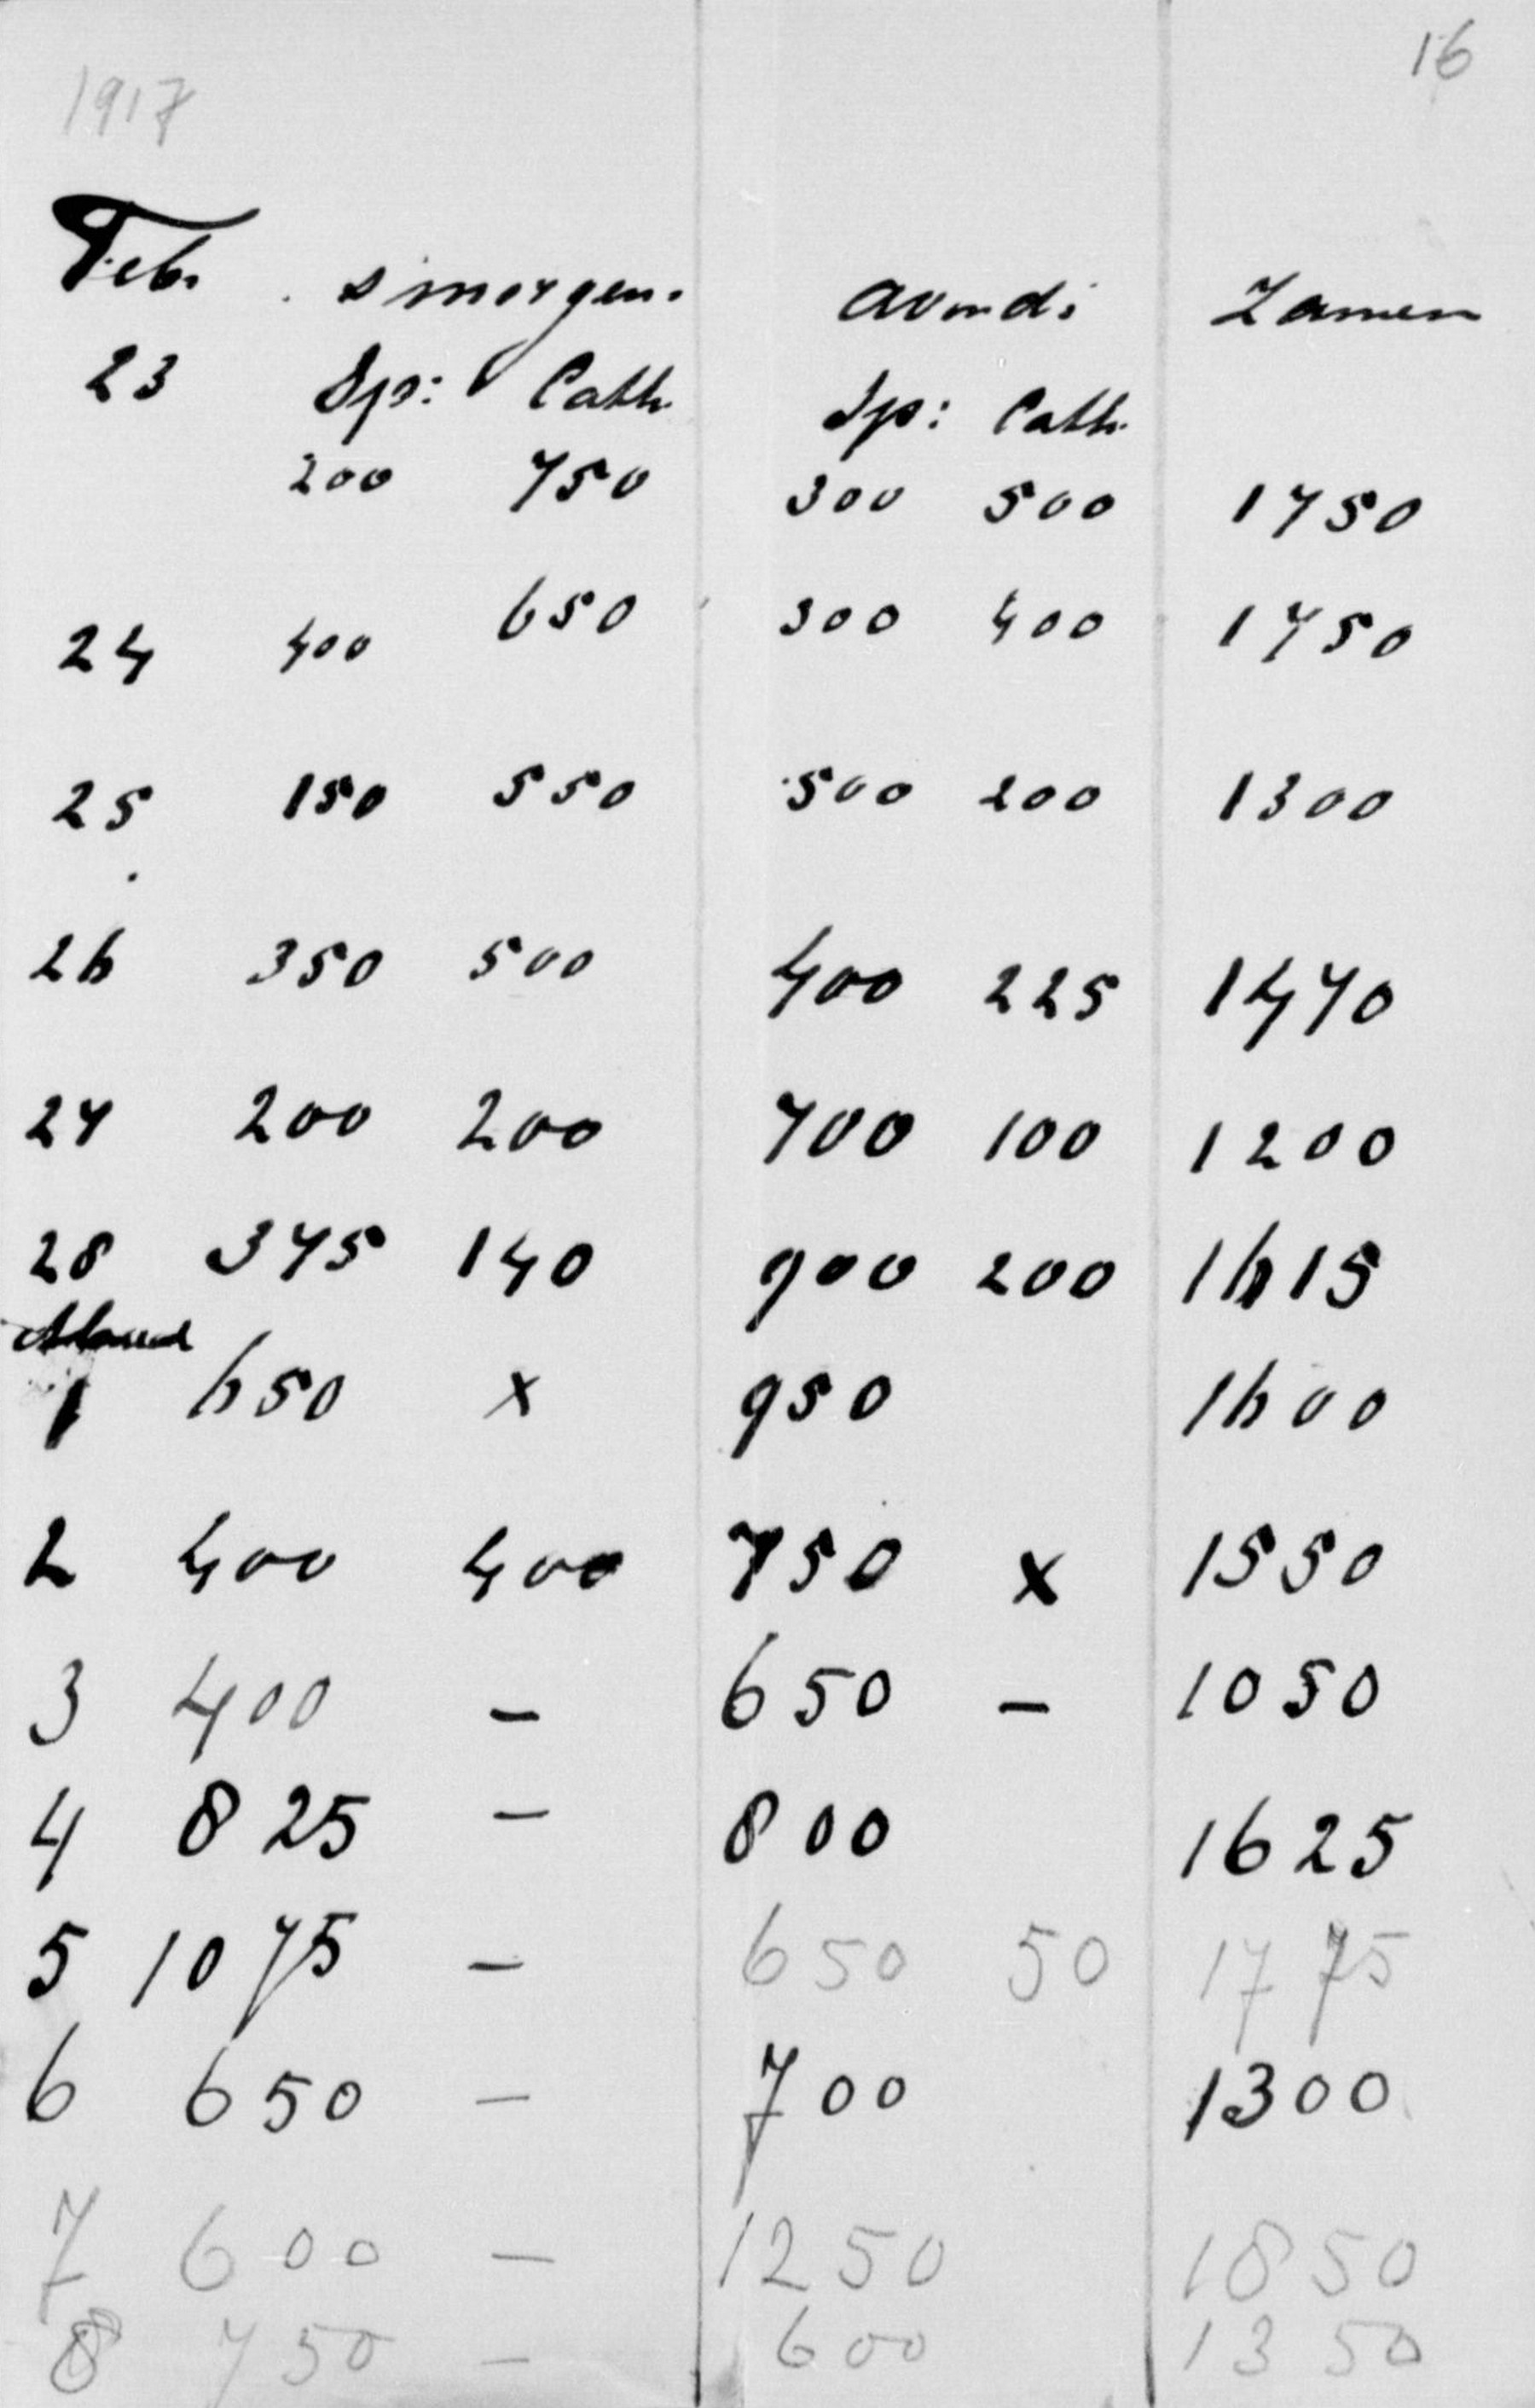 16
1917
Feb. s'morgen. avonds Zamen
23 Sp: Cath. Sp: Cath.
200 750 300 500 1750
24 400 650 300 400 1750
25 150 550 500 200 1300
26 350 500 400 225 1470
27 200 200 700 100 1200
28 375 140 900 200 1615
1 650 x 950 1600
2 400 400 750 x 1550
3 400 - 650 - 1050
4 825 - 800 1625
5 1075 - 650 50 1775
6 650 - 700 1300
7 600 - 1250 1850
8 750 - 600 1350